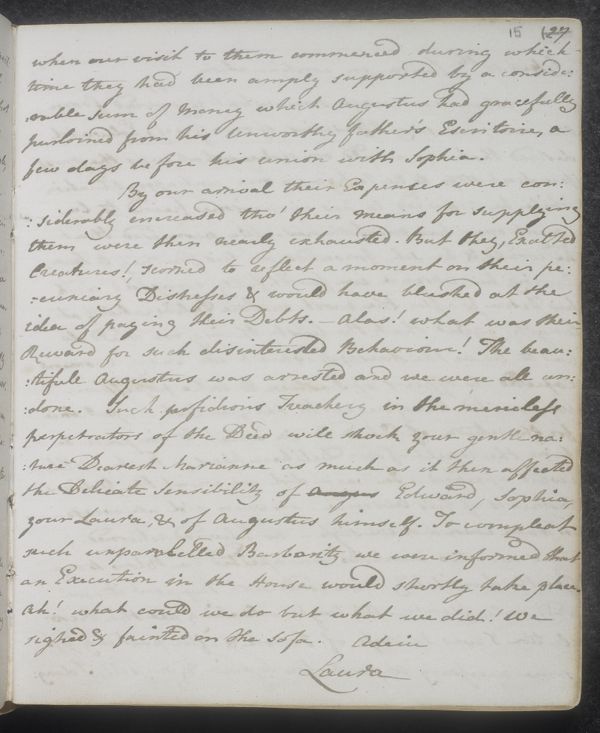 15 (27
when our visit to them commenced during which
time they had been amply supported by a conside:
:rable sum of Money which Augustus had gracefully
purloined from his Unworthy father's Escritoire, a
few days before his union with Sophia.
By our arrival their Expenses were con:
:siderably encreased tho' their means for supplying
them were then nearly exhausted. But they, Exalted
Creatures!, scorned to reflect a moment on their pe:
:cuniary Distresses & would have blushed at the
idea of paying their Debts. — Alas! what was their
Reward for such disinterested Behaviour! The beau:
:tifull Augustus was arrested and we were all un:
:done. Such perfidious Treachery in the merciless
perpetrators of the Deed will shock your gentle na:
:ture Dearest Marianne as much as it then affected
the Delicate Sensibility of Edward, Sophia,
your Laura, & of Augustus himself. To compleat
such unparalelled Barbarity we were informed that
an Execution in the House would shortly take place.
Ah! what could we do but what we did! We
sighed & fainted on the Sofa. Adeiu
Laura